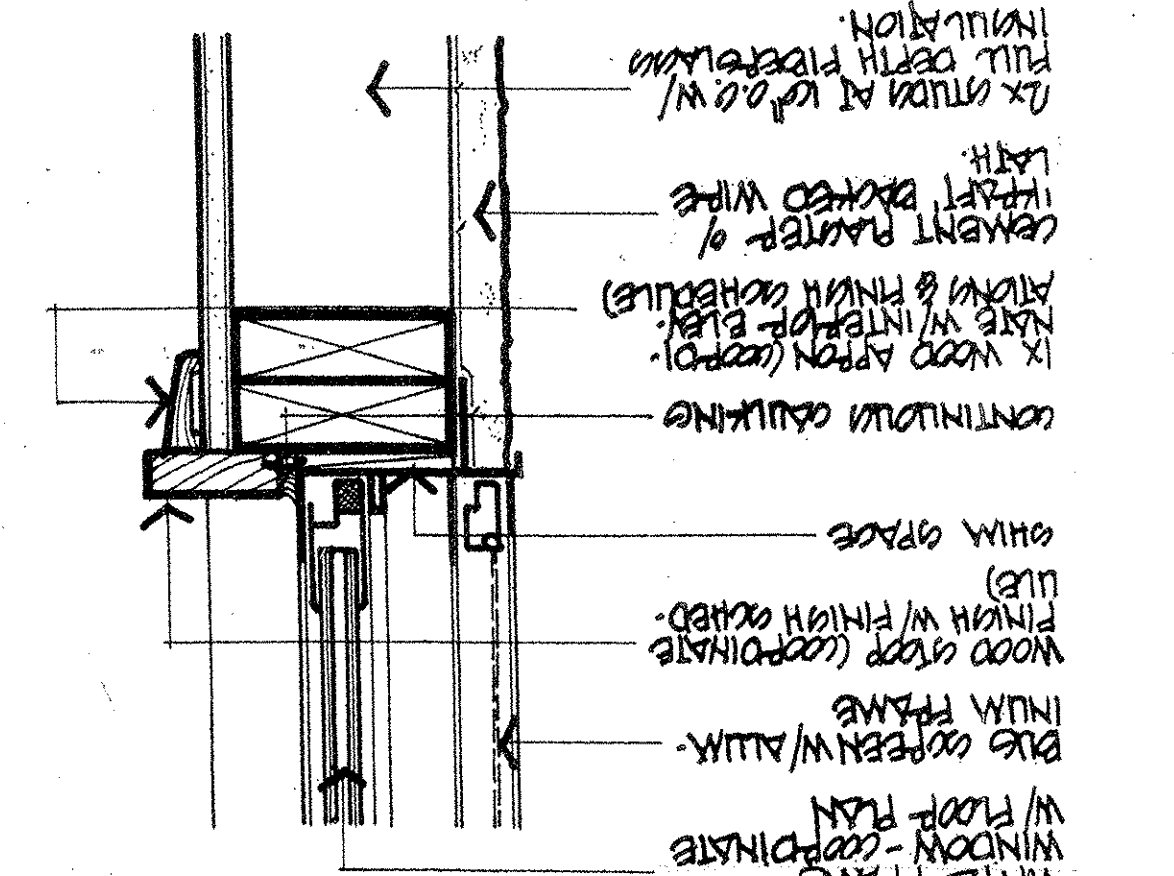 WINDOW - COORDINATE
W/ FLOOR PLAN
BUG SCREEN W/ ALUM-
INUM FRAME
WOOD STOOP (COORDINATE
FINISH W/ FINISH SCHED-
ULE)
SHIM SPACE
CONTINUOUS CAULKING
1X WOOD APRON (COORDI-
NATE W/ INTERIOR ELEV-
ATIONS & FINISH SCHEDULE)
CEMENT PLASTER o/
KRAFT BACKED WIRE
LATH.
2X STUDS AT 16" O.C. W/
FULL DEPTH FIBERGLASS
INSULATION.